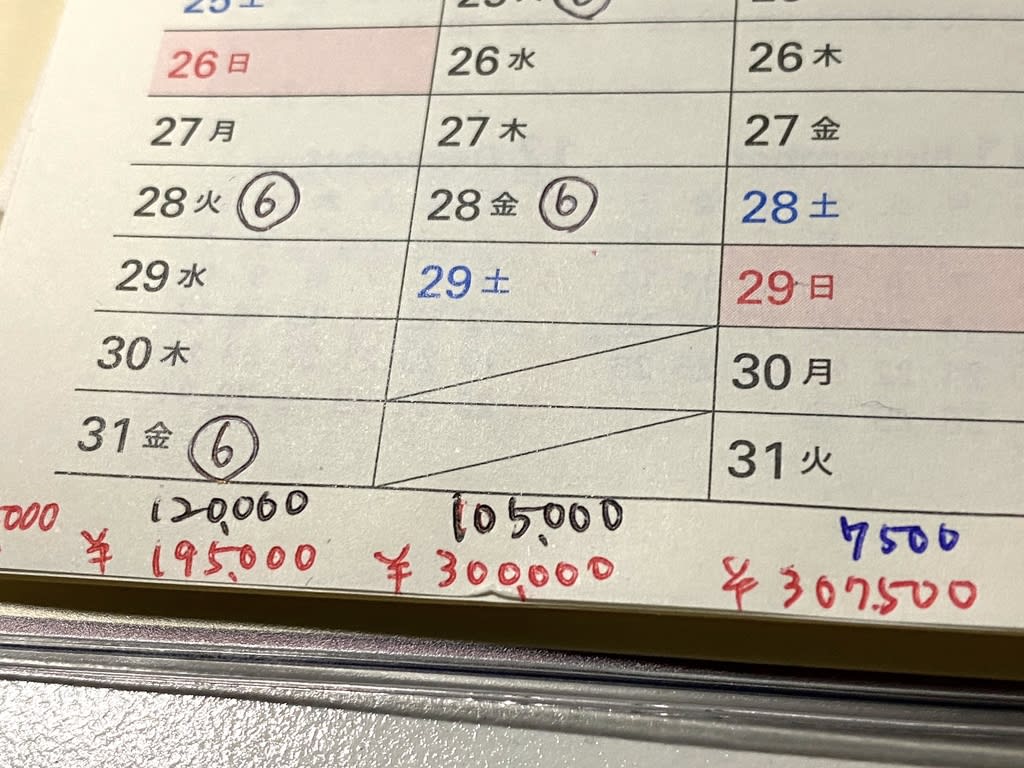 26 日 26 水 26 木
27 月 27 木 27 金
28 火 ⑥ 28 金 ⑥ 28 土
29 水 29 土 29 日
30 木 30 月
31 金 ⑥ 31 火
000 120,000 105,000 7500
¥ 195,000 ¥ 300,000 ¥ 307,500